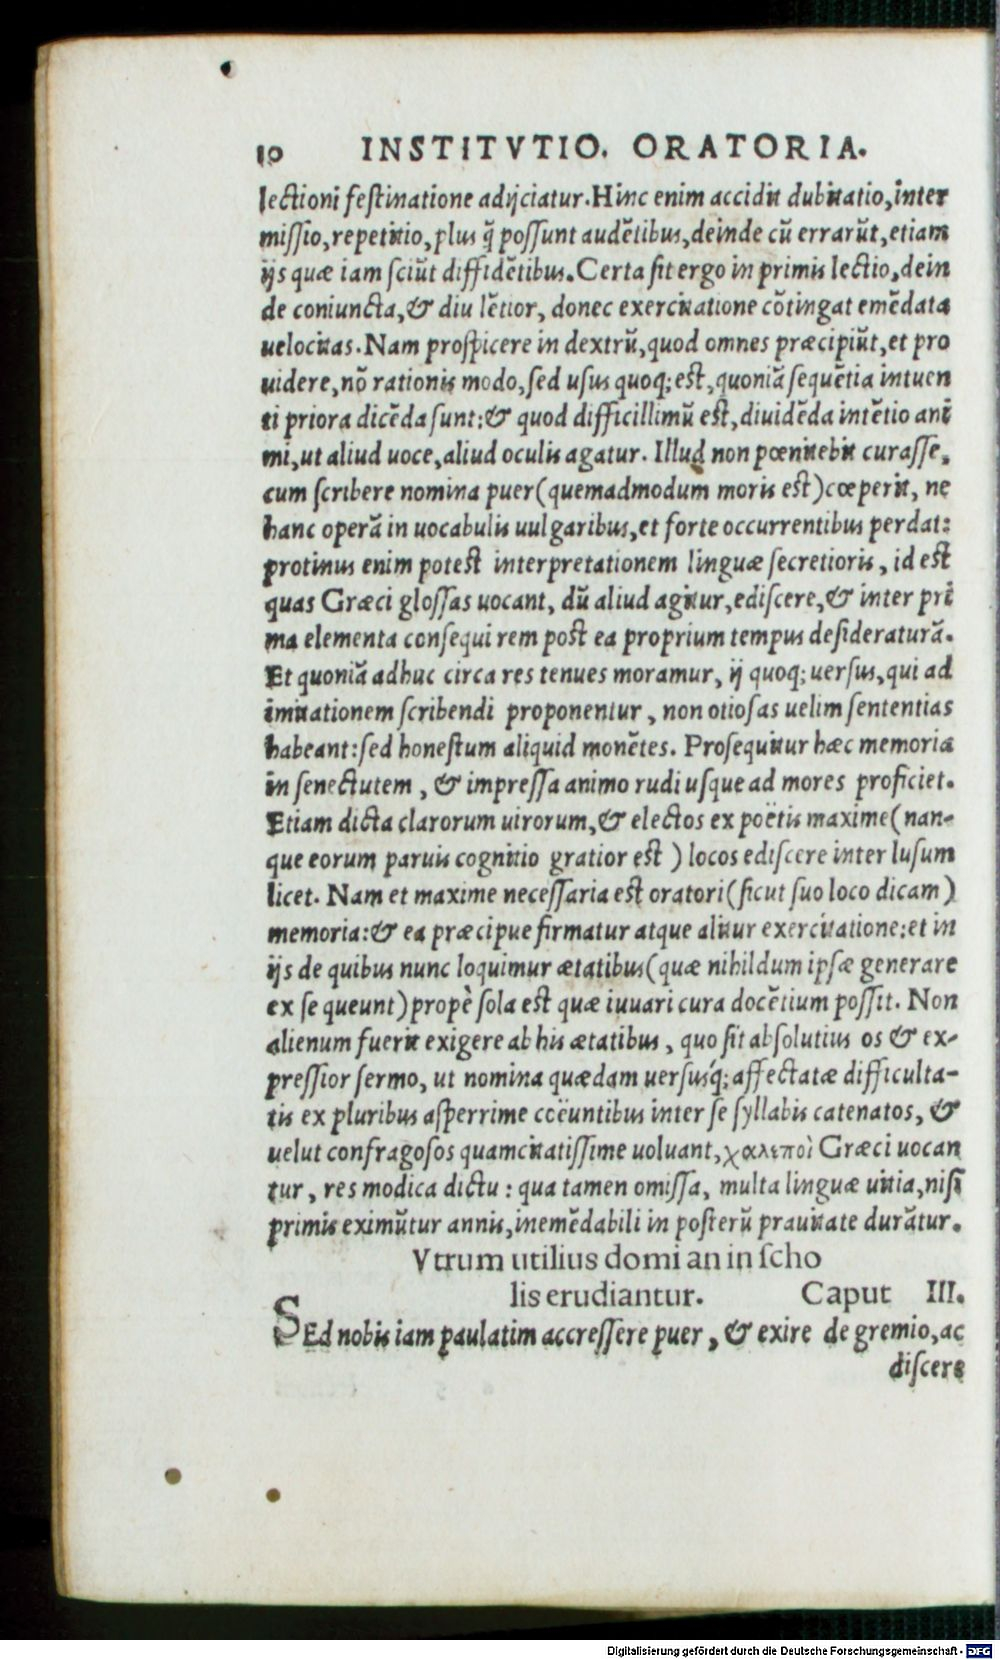 10 INSTITVTIO. ORATORIA.
lectioni festinatione adijciatur. Hinc enim accidit dubitatio, inter
missio, repetitio, plus q̃ possunt audẽtibus, deinde cũ errarũt, etiam
ijs quæ iam sciũt diffidẽtibus. Certa sit ergo in primis lectio, dein
de coniuncta, & diu lẽtior, donec exercitatione cõtingat emẽdata
uelocitas. Nam prospicere in dextrũ, quod omnes præcipiũt, et pro
uidere, nõ rationis modo, sed usus quoq; est, quoniã sequẽtia intuen
ti priora dicẽda sunt: & quod difficillimũ est, diuidẽda intẽtio ani
mi, ut aliud uoce, aliud oculis agatur. Illud non pœnitebit curasse,
cum scribere nomina puer (quemadmodum moris est) cœperit, ne
hanc operã in uocabulis uulgaribus, et forte occurrentibus perdat:
protinus enim potest interpretationem linguæ secretioris, id est
quas Græci glossas uocant, dũ aliud agitur, ediscere, & inter pri
ma elementa consequi rem post ea proprium tempus desideraturã.
Et quoniã adhuc circa res tenues moramur, ij quoq; uersus, qui ad
imitationem scribendi proponentur, non otiosas uelim sententias
habeant: sed honestum aliquid monẽtes. Prosequitur hæc memoria
in senectutem, & impressa animo rudi usque ad mores proficiet.
Etiam dicta clarorum uirorum, & electos ex poëtis maxime (nan-
que eorum paruis cognitio gratior est) locos ediscere inter lusum
licet. Nam et maxime necessaria est oratori (sicut suo loco dicam)
memoria: & ea præcipue firmatur atque alitur exercitatione: et in
ijs de quibus nunc loquimur ætatibus (quæ nihildum ipsæ generare
ex se queunt) propè sola est quæ iuuari cura docẽtium possit. Non
alienum fuerit exigere ab his ætatibus, quo sit absolutius os & ex-
pressior sermo, ut nomina quædam uersusq́; affectatæ difficulta-
tis ex pluribus asperrime coëuntibus inter se syllabis catenatos, &
uelut confragosos quamcitatissime uoluant, χαλεποὶ Græci uocan
tur, res modica dictu: qua tamen omissa, multa linguæ uitia, nisi
primis eximũtur annis, inemẽdabili in posterũ prauitate durãtur.
Vtrum utilius domi an in scho
lis erudiantur. Caput III.
SEd nobis iam paulatim accressere puer, & exire de gremio, ac
discere
Digitalisierung gefördert durch die Deutsche Forschungsgemeinschaft - DFG